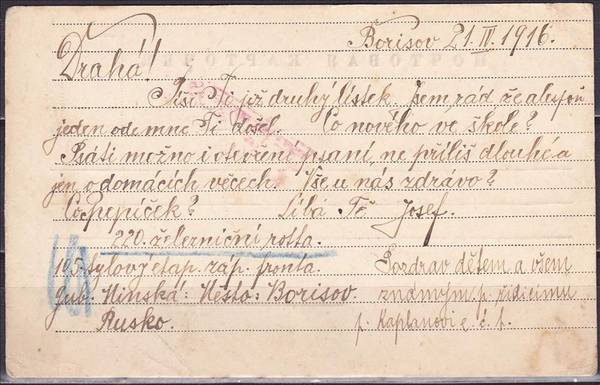 Borisov 21. IV. 1916.
Drahá!
Píši Ti již druhý lístek. Jsem rád že alespoň
jeden ode mne Ti došel. Co nového ve škole?
Psáti možno i otevřené psaní, ne příliš dlouhé a
jen o domácích věcech. Vše u nás zdrávo?
Co Pepíček? Líbá Tě Josef.
220. železniční rotta.
105. tylový etap. záp. fronta.
Gub: Minská: Město: Borisov.
Rusko.
Pozdrav dětem a všem
známým p. řídicímu
p. Kaplanovi